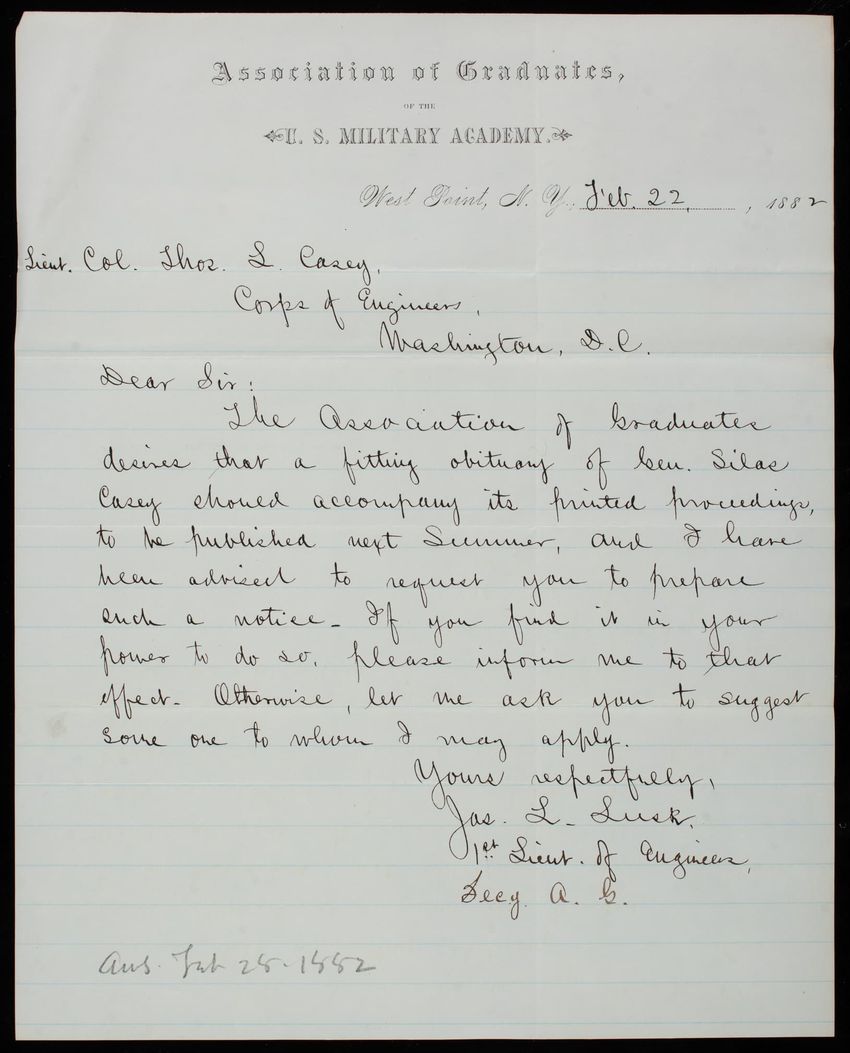 Association of Graduates,
OF THE
U. S. MILITARY ACADEMY.
West Point, N. Y., Feb. 22, 1882
Lieut. Col. Thos. L. Casey,
Corps of Engineers,
Washington, D.C.
Dear Sir:
The Association of Graduates
desires that a fitting obituary of Gen. Silas
Casey should accompany its printed proceedings,
to be published next Summer, and I have
been advised to request you to prepare
such a notice - If you find it in your
power to do so, please inform me to that
effect - Otherwise, let me ask you to suggest
some one to whom I may apply.
Yours respectfully,
Jas. L. Lusk,
1st Lieut. of Engineers,
Secy. A. G.
Ans. Feb 25-1882